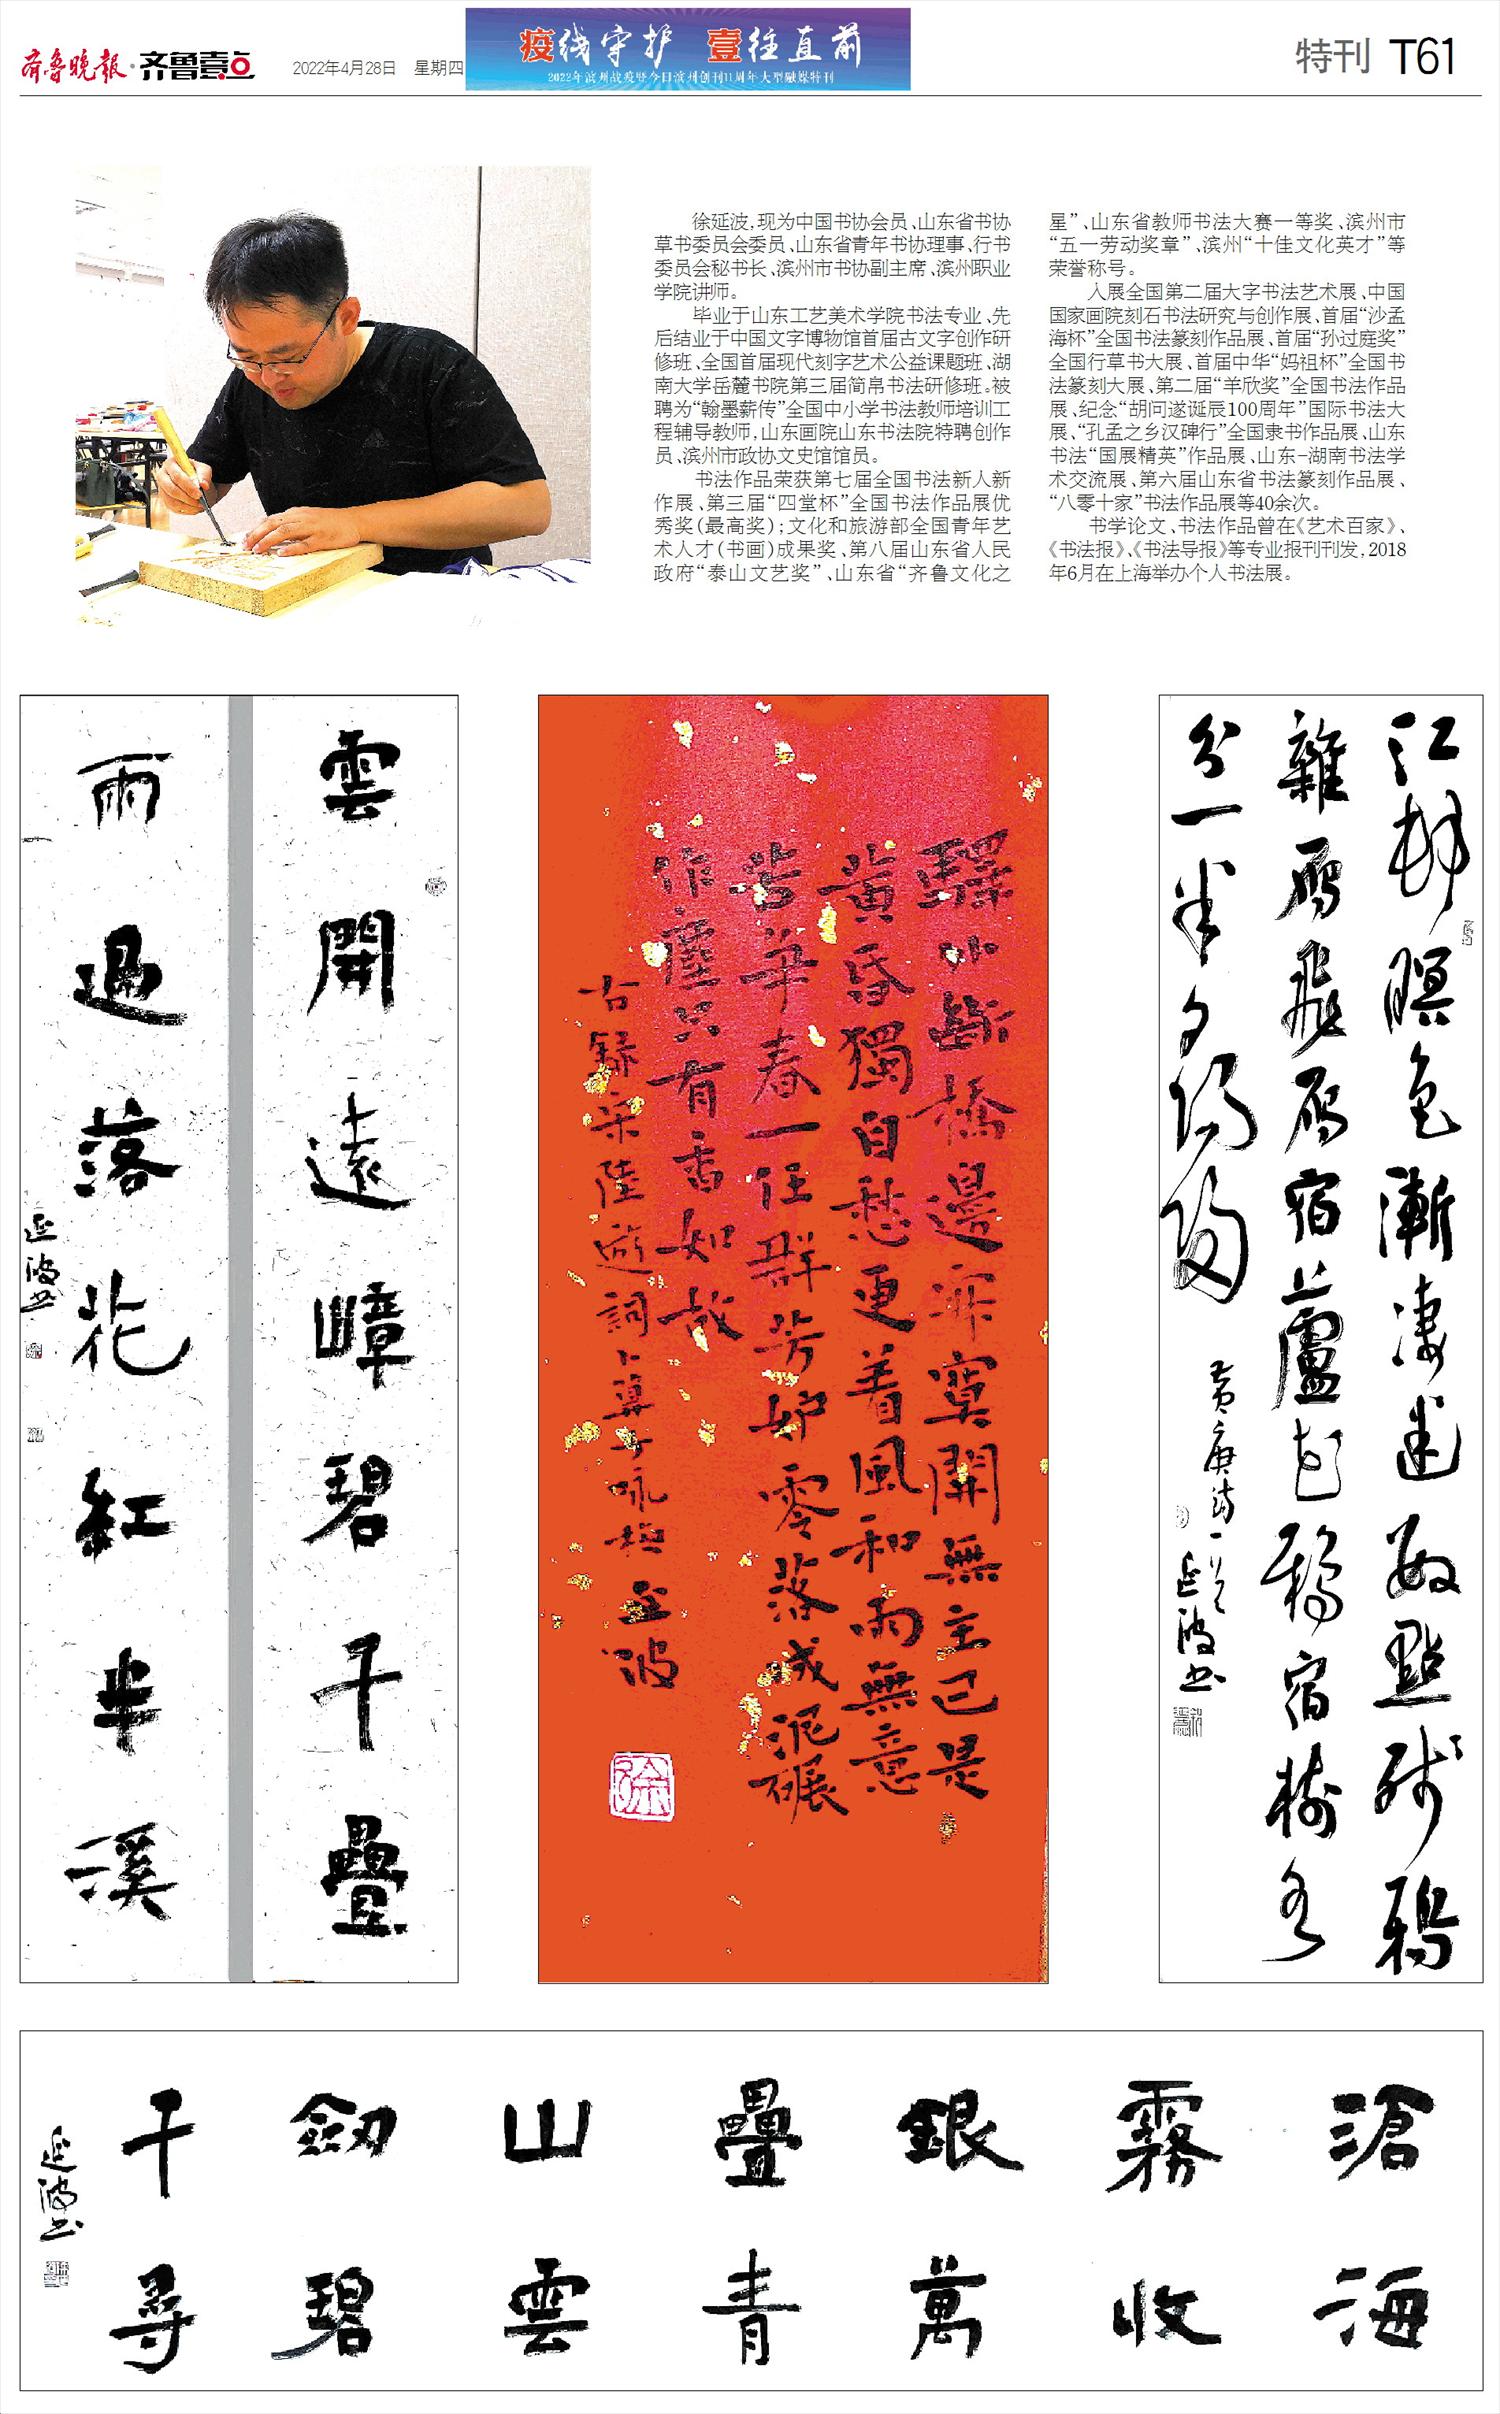 齐鲁晚报·齐鲁壹点
2022年4月28日 星期四
疫线守护 壹往直前
2022年滨州战疫暨今日滨州创刊11周年大型融媒特刊
特刊 T61
徐延波,现为中国书协会员、山东省书协
草书委员会委员、山东省青年书协理事、行书
委员会秘书长、滨州市书协副主席、滨州职业
学院讲师。
毕业于山东工艺美术学院书法专业、先
后结业于中国文字博物馆首届古文字创作研
修班、全国首届现代刻字艺术公益课题班、湖
南大学岳麓书院第三届简帛书法研修班。被
聘为“翰墨薪传”全国中小学书法教师培训工
程辅导教师,山东画院山东书法院特聘创作
员、滨州市政协文史馆馆员。
书法作品荣获第七届全国书法新人新
作展、第三届“四堂杯”全国书法作品展优
秀奖(最高奖);文化和旅游部全国青年艺
术人才(书画)成果奖、第八届山东省人民
政府“泰山文艺奖”、山东省“齐鲁文化之
星”、山东省教师书法大赛一等奖、滨州市
“五一劳动奖章”、滨州“十佳文化英才”等
荣誉称号。
入展全国第二届大字书法艺术展、中国
国家画院刻石书法研究与创作展、首届“沙孟
海杯”全国书法篆刻作品展、首届“孙过庭奖”
全国行草书大展、首届中华“妈祖杯”全国书
法篆刻大展、第二届“羊欣奖”全国书法作品
展、纪念“胡问遂诞辰100周年”国际书法大
展、“孔孟之乡汉碑行”全国隶书作品展、山东
书法“国展精英”作品展、山东-湖南书法学
术交流展、第六届山东省书法篆刻作品展、
“八零十家”书法作品展等40余次。
书学论文、书法作品曾在《艺术百家》、
《书法报》、《书法导报》等专业报刊刊发,2018
年6月在上海举办个人书法展。
雲開遠嶂碧千疊
雨過落花紅半溪
延波书
驛外斷橋邊寂寞開無主已是
黃昏獨自愁更着風和雨無意
苦爭春一任群芳妒零落成泥碾
作塵只有香如故
右録宋陸遊詞卜算子咏梅 延波
徐
江村暝色漸凄迷數點残鴉
雜雁飛雁宿蘆花鴉宿樹各
分一半夕阳
黄庚诗一首 延波书
滄海
霧收
銀萬
疊青
山雲
劔碧
千尋
延波书